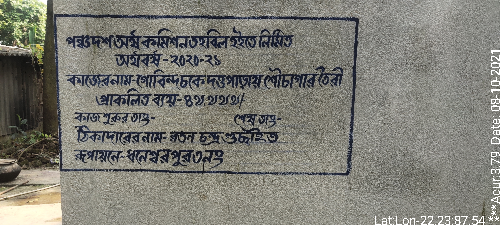 পঞ্চদশ অর্থ কমিশন তহবিল হইতে নির্মিত
অর্থবর্ষ - ২০২০-২১
কাজের নাম - গোবিন্দচকে দত্তপাড়ায় শৌচাগার তৈরী
প্রাকলিত ব্যয় -
কাজ শুরুর তাং - শেষ তাং -
ঠিকাদারের নাম - রতন চন্দ্র গুছাইত
রূপায়নে - ধলেশ্বরপুর ৩নং
Lat:Lon-22.23:87.54
***Agur3.79 Date:08-10-2021